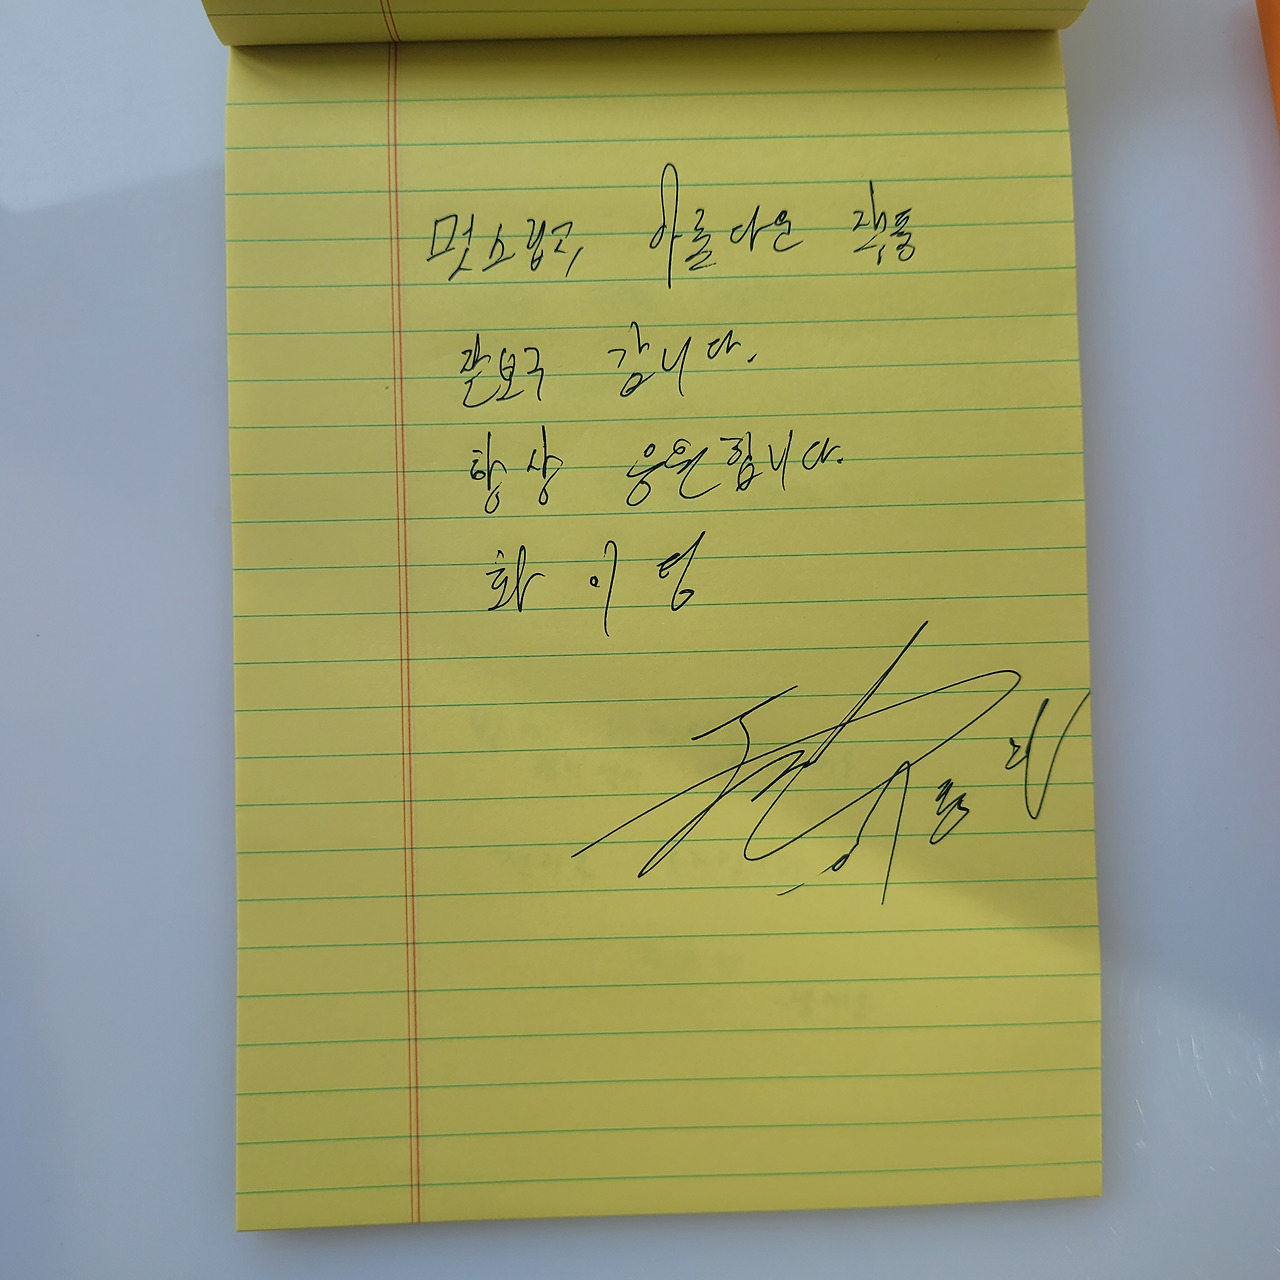 멋스럽고, 아름다운 작품
잘보구 갑니다.
항상 응원합니다.
화이팅